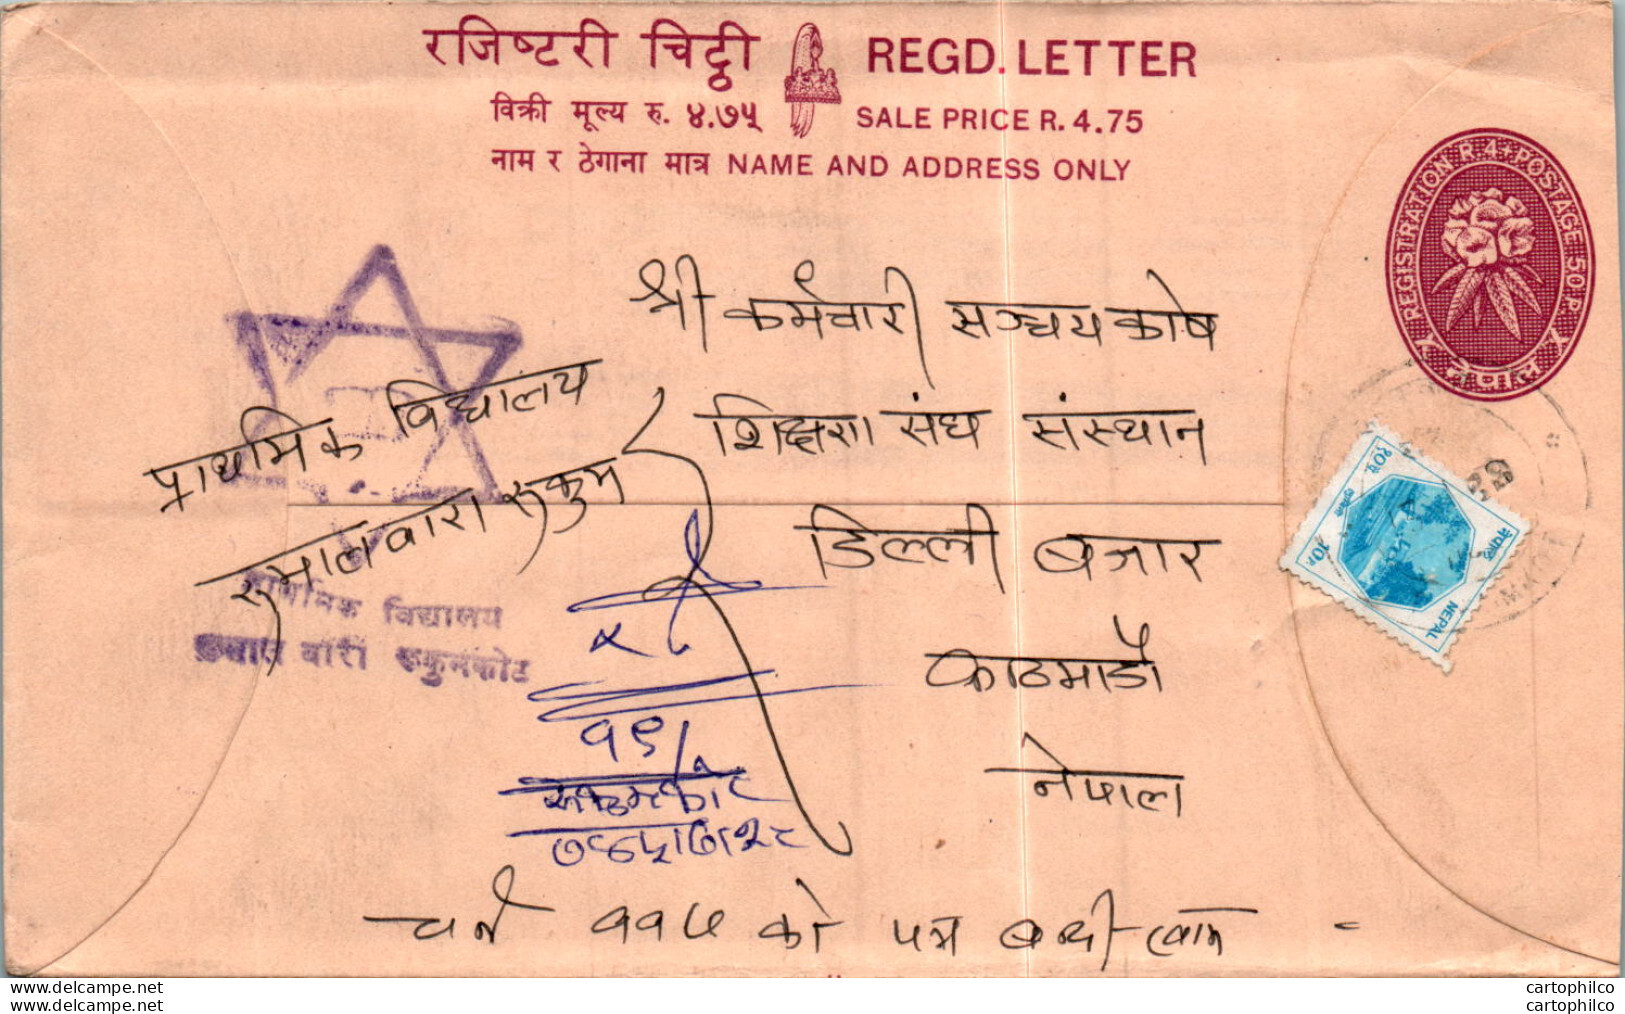 रजिष्टरी चिट्ठी REGD. LETTER
विक्री मूल्य रु. ४.७५ SALE PRICE R. 4.75
नाम र ठेगाना मात्र NAME AND ADDRESS ONLY
REGISTRATION R. 4 + POSTAGE 50 P.
नेपाल
श्री कर्मचारी सञ्चय कोष
शिक्षा संघ संस्थान
डिल्ली बजार
काठमाडौ
नेपाल
प्राथमिक विद्यालय
रुमालवारा रुकुम
प्राथमिक विद्यालय
वारी रुकुमकोट
१० पै.
10 P.
नेपाल
NEPAL
१९/
रुकुमकोट
११५ को पत्र
cartophilco
cartophilco
www.delcampe.net
www.delcampe.net